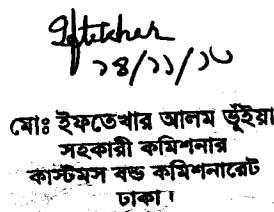 Iftekhar
১৪/১১/১০
মোঃ ইফতেখার আলম ভূঁইয়া
সহকারী কমিশনার
কাস্টমস বন্ড কমিশনারেট
ঢাকা।